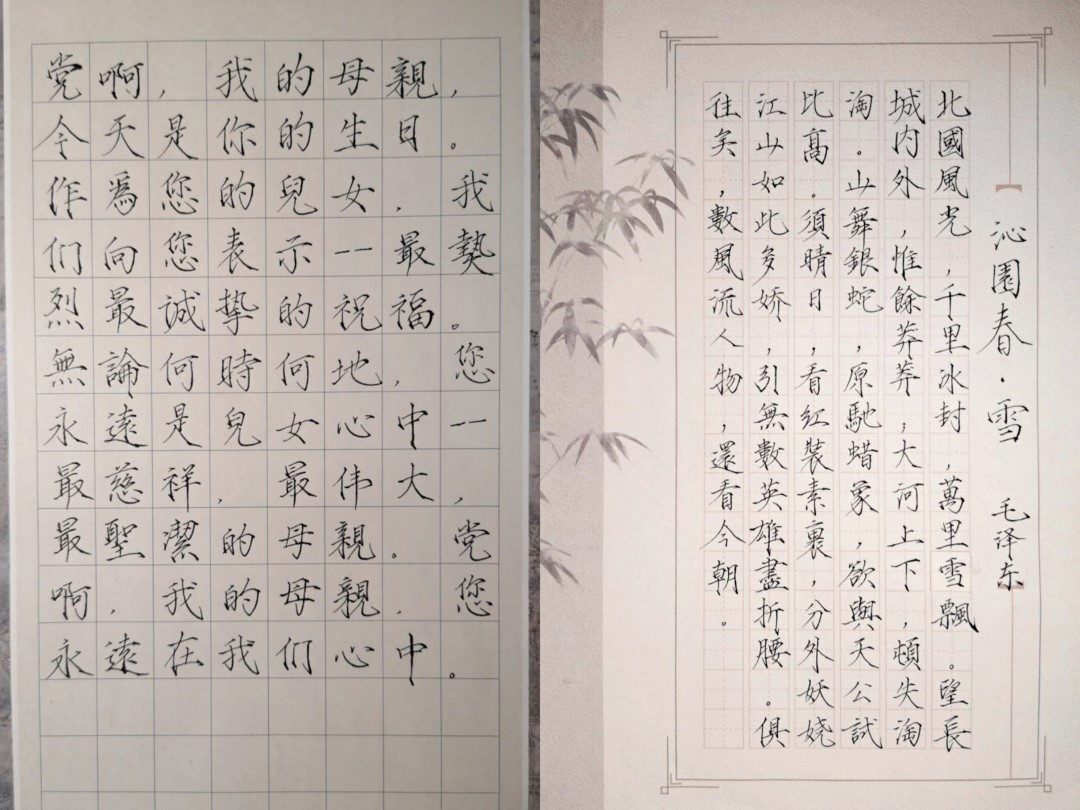 党啊，我的母親，
今天是你的生日。
作為您的兒女，我
们向您表示--最熱
烈最誠摯的祝福。
無論何時何地，您
永遠是兒女心中--
最慈祥，最伟大，
最聖潔的母親。党
啊，我的母親，您
永遠在我们心中。
沁園春·雪 毛泽东
北國風光，千里冰封，萬里雪飄。望長
城内外，惟餘莽莽，大河上下，頓失淘
淘。山舞銀蛇，原馳蜡象，欲與天公試
比髙。須晴日，看红裝素裹，分外妖娆
江山如此多娇，引無數英雄盡折腰。俱
往矣，數風流人物，還看今朝。